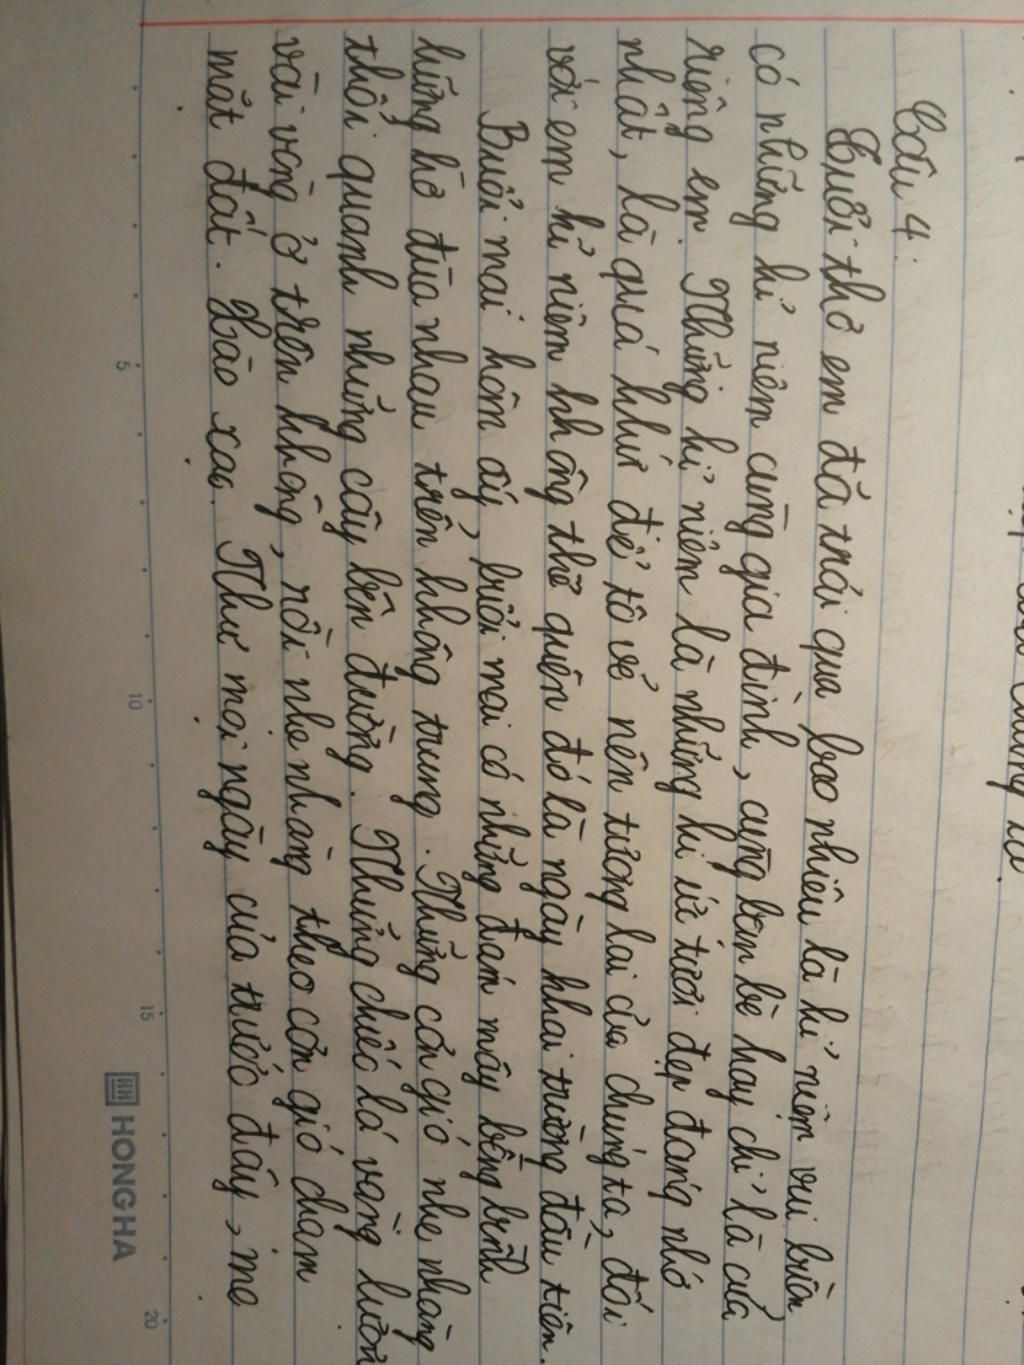 Câu 4:
Tuổi thơ em đã trải qua bao nhiêu là kỉ niệm vui buồn
có những kỉ niệm cùng gia đình, cùng bạn bè hay chỉ là của
riêng em. Những kỉ niệm là những kí ức tươi đẹp đáng nhớ
nhất, là quá khứ để tô vẽ nên tương lai của chúng ta, đối
với em kỉ niệm không thể quên đó là ngày khai trường đầu tiên.
Buổi mai hôm ấy, buổi mai có những đám mây bồng bềnh
hững hờ đùa nhau trên không trung. Những cơn gió nhẹ nhàng
thổi quanh những cây bên đường. Những chiếc lá vàng lượn
vài vòng ở trên không, rồi nhẹ nhàng theo cơn gió chạm
mặt đất. Xào xạc. Như mọi ngày của trước đây, mẹ
5
10
15
20
HONG HA